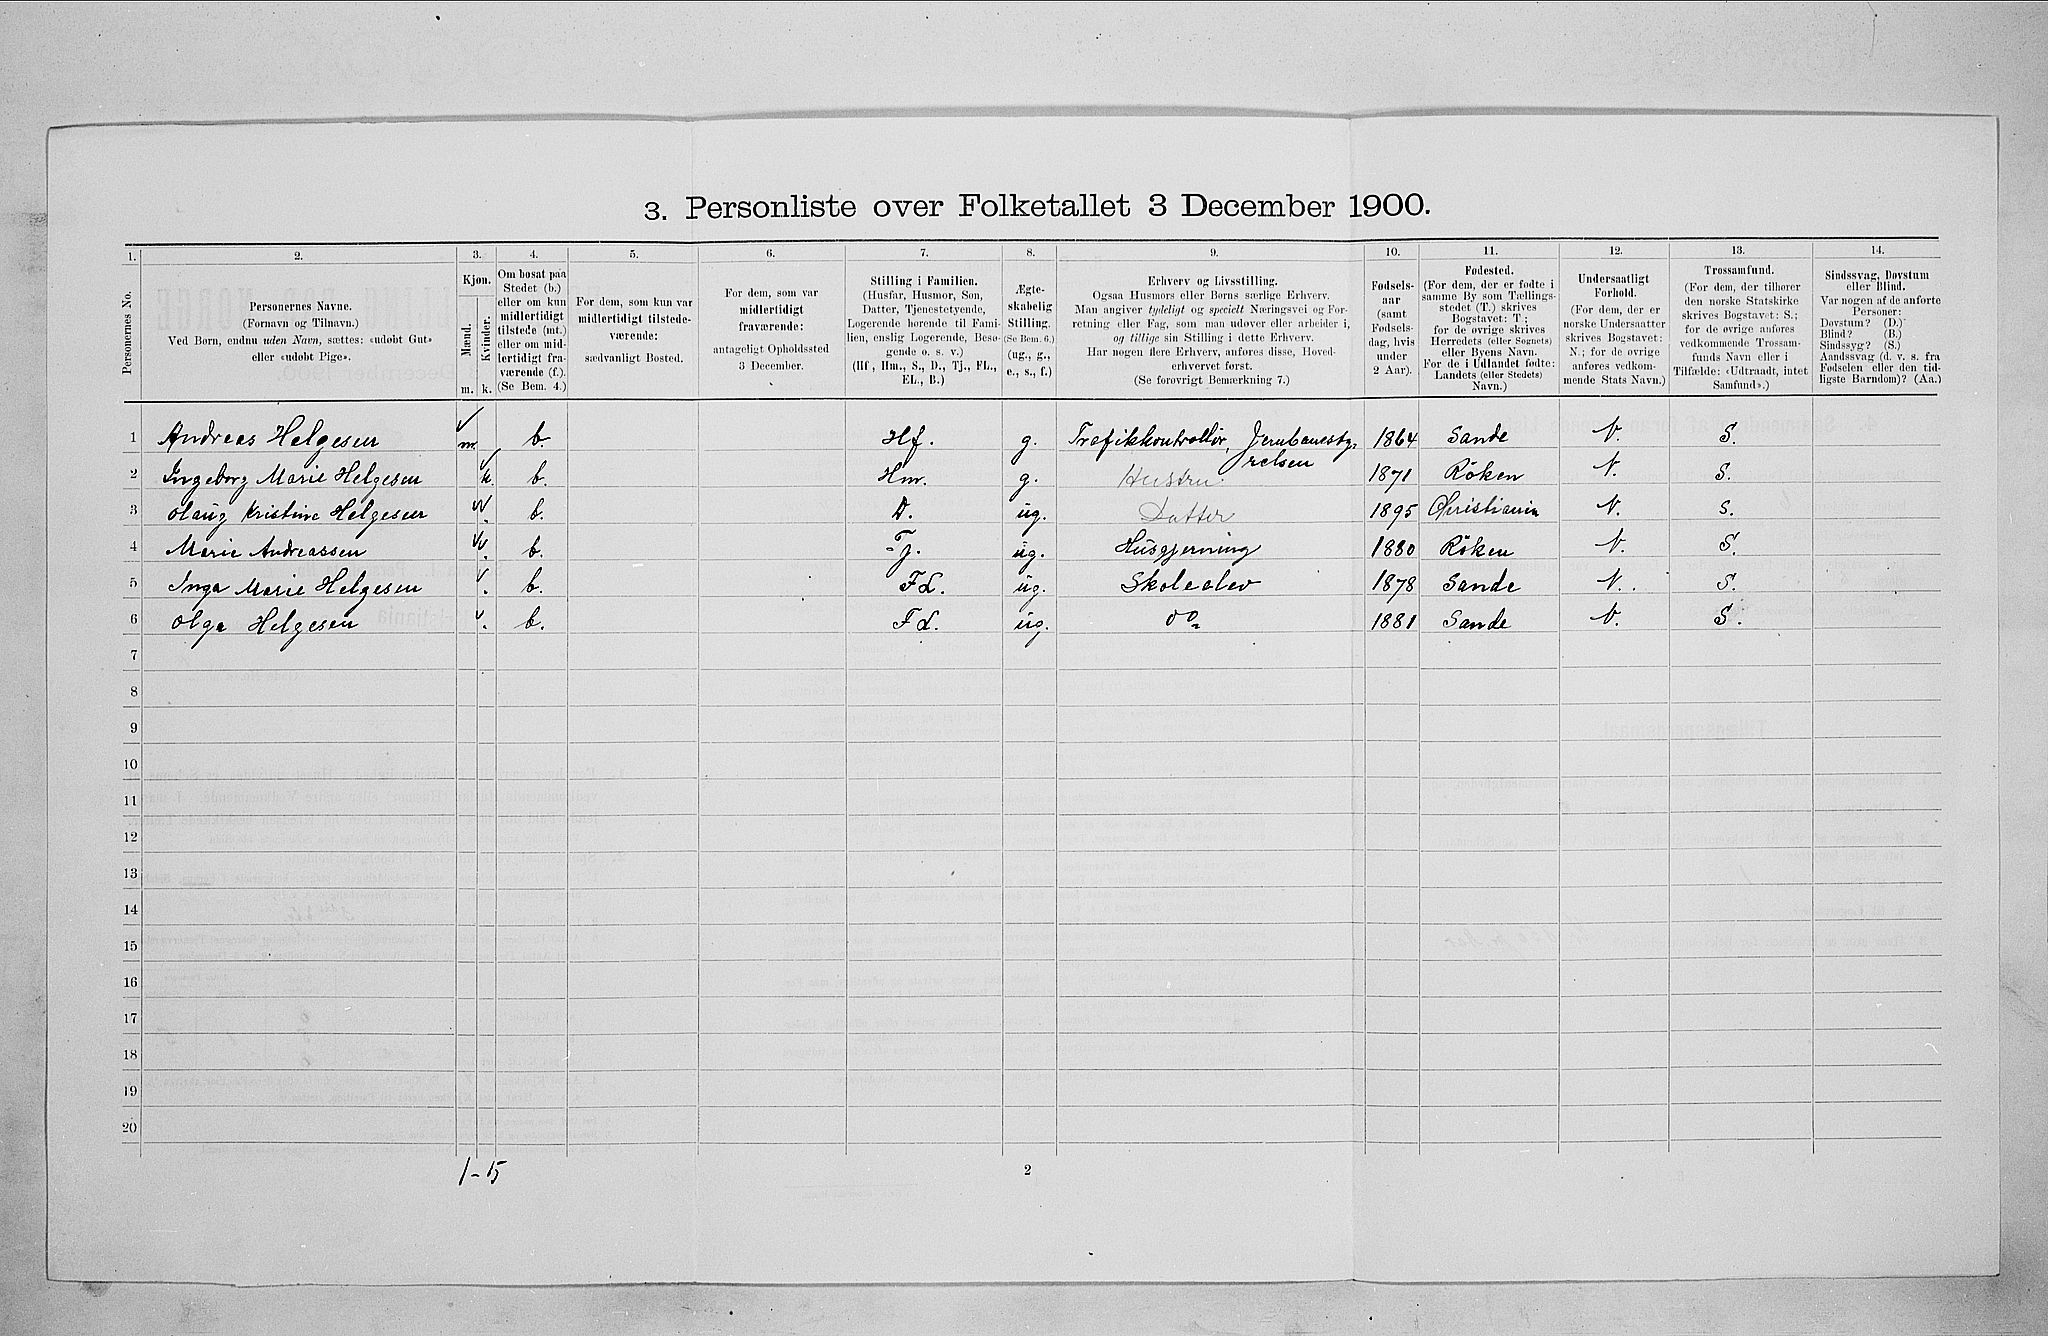 3. Personliste over Folketallet 3 December 1900.
1. 2. 3. 4. 5. 6. 7. 8. 9. 10. 11. 12. 13. 14.
Personernes No.
Personernes Navne.
(Fornavn og Tilnavn.)
Ved Børn, endnu uden Navn, sættes: «udøbt Gut»
eller «udøbt Pige».
Kjøn.
Mænd.
Kvinder.
m. k.
Om bosat paa
Stedet (b.)
eller om kun
midlertidigt
tilstede (mt.)
eller om mid-
lertidigt fra-
værende (f.).
(Se Bem. 4.)
For dem, som kun var
midlertidigt tilstede-
værende:
sædvanligt Bosted.
For dem, som var
midlertidigt
fraværende:
antageligt Opholdssted
3 December.
Stilling i Familien.
(Husfar, Husmor, Søn,
Datter, Tjenestetyende,
Logerende hørende til Fami-
lien, enslig Logerende, Besø-
gende o. s. v.)
(Hf., Hm., S., D., Tj., FL.,
EL., B.)
Ægte-
skabelig
Stilling.
(Se Bem. 6.)
(ug., g.,
e., s., f.)
Erhverv og Livsstilling.
Ogsaa Husmors eller Børns særlige Erhverv.
Man angiver tydeligt og specielt Næringsvei og For-
retning eller Fag, som man udøver eller arbeider i,
og tillige sin Stilling i dette Erhverv.
Har nogen flere Erhverv, anføres disse, Hoved-
erhvervet først.
(Se forøvrigt Bemærkning 7.)
Fødsels-
aar
(samt
Fødsels-
dag, hvis
under
2 Aar).
Fødested.
(For dem, der er fødte i
samme By som Tællings-
stedet (T.) skrives
Bogstavet: T.;
for de øvrige skrives
Herredets (eller Sognets)
eller Byens Navn.
For de i Udlandet fødte:
Landets (eller Stedets)
Navn.)
Undersaatligt
Forhold.
(For dem, der er
norske Undersaatter
skrives Bogstavet:
N.; for de øvrige
anføres vedkom-
mende Stats Navn.)
Trossamfund.
(For dem, der tilhører
den norske Statskirke
skrives Bogstavet: S.;
for de øvrige anføres
vedkommende Trossam-
funds Navn eller i
Tilfælde: «Udtraadt, intet
Samfund».)
Sindssvag, Døvstum
eller Blind.
Var nogen af de anførte
Personer:
Døvstum? (D.)
Blind? (B.)
Sindssyg? (S.)
Aandssvag (d. v. s. fra
Fødselen eller den tid-
ligste Barndom)? (Aa.)
1 Andreas Helgesen m. b. Hf. g. Trafikkontrollör, Jernbanesty- 1864 Sande N. S.
relsen
2 Ingeborg Marie Helgesen k. b. Hm. g. Hustru 1871 Röken N. S.
3 Olaug Kristine Helgesen b. D. ug. Datter 1895 Christiania N. S.
4 Marie Andreassen b. Tj. ug. Husgjerning 1880 Röken N. S.
5 Inga Marie Helgesen b. FL. ug. Skoleelev 1878 Sande N. S.
6 Olga Helgesen b. FL. ug. do 1881 Sande N. S.
7
8
9
10
11
12
13
14
15
16
17
18
19
20
1-5
2